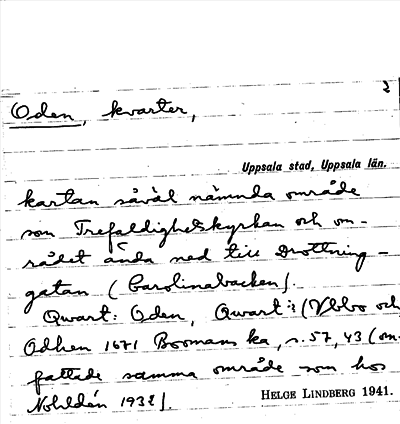 2
Oden, kvarter,
Uppsala stad, Uppsala län.
kartan såväl nämnda område
som Trefaldighetskyrkan och om-
rådet ända ned till Drottning-
gatan (Carolinabacken).
Qwart: Oden, Qwart: (Ubbo och
Odhen 1671 Boomans ka, s. 57, 43 (om-
fattade samma område som hos
1938).
HELGE LINDBERG 1941.